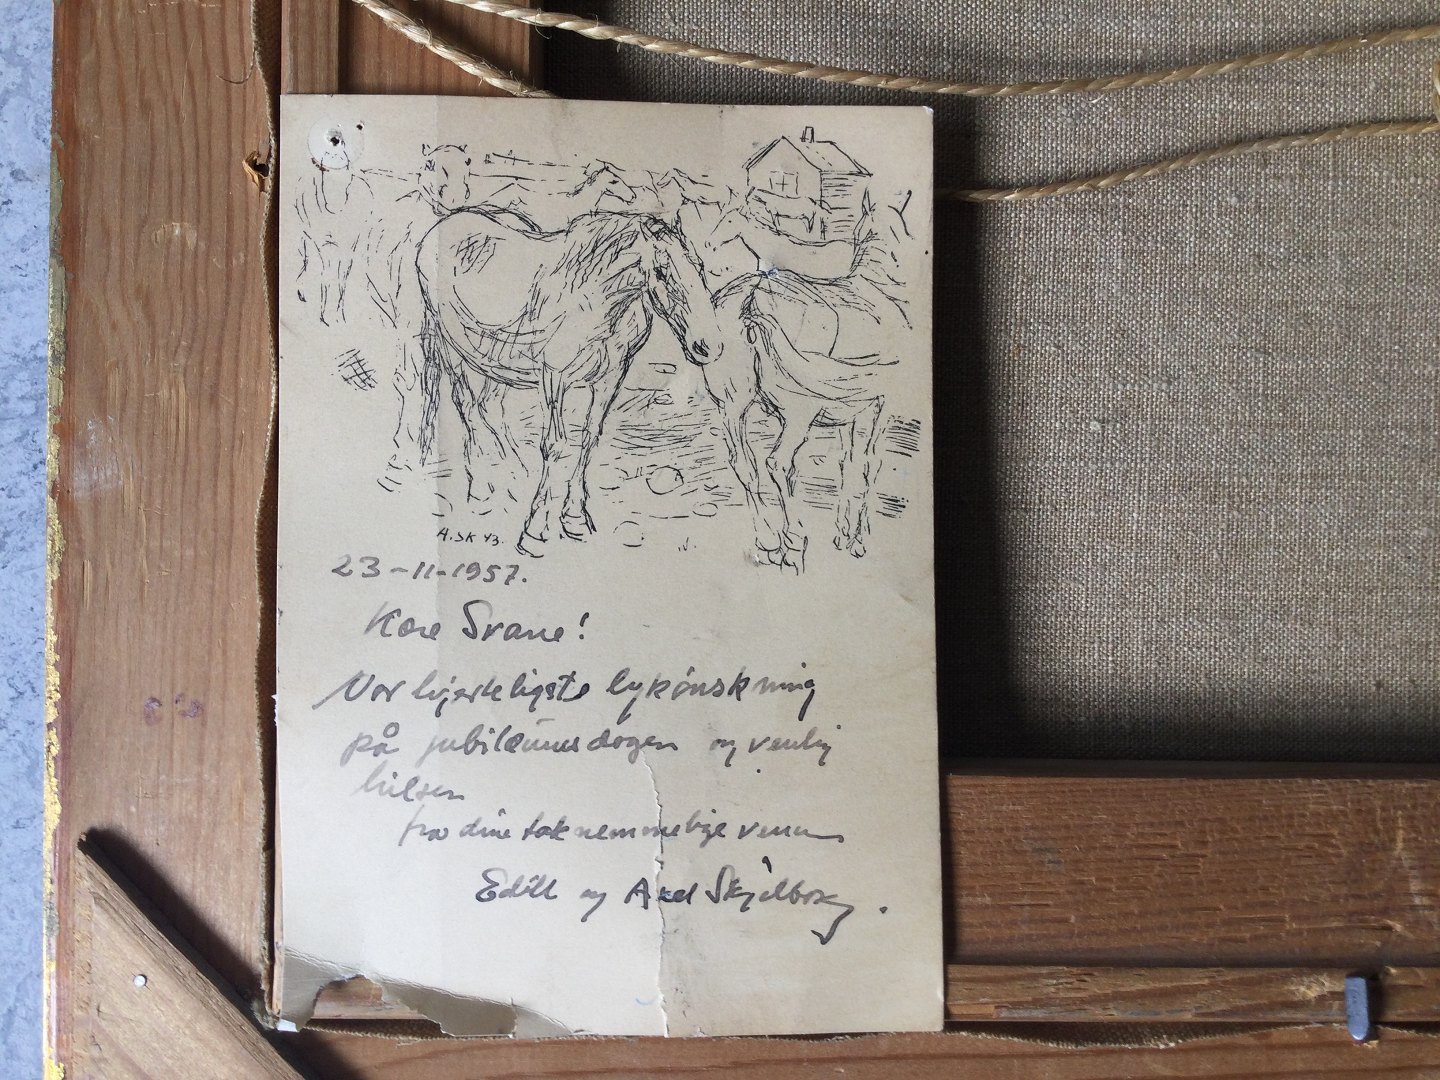 A. SK 43.
23-11-1957.
Kære Svane!
Vor hjerteligste lykønskning
på jubilæumsdagen og venlig
hilsen
fra dine taknemmelige venner
Edith og Axel Skjelborg.